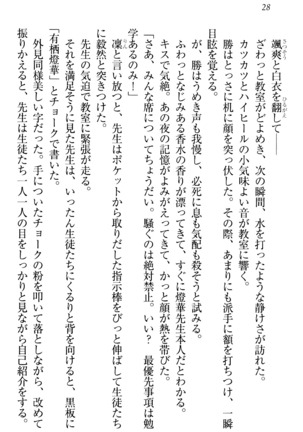 28
颯爽と白衣を翻して――
ざわっと教室がどよめき、次の瞬間、水を打ったような静けさが訪れた。
カツカツとハイヒールの小気味よい音が教室に響く。
勝はとっさに机に顔を突っ伏した。その際、あまりにも派手に額を打ちつけ、一瞬
目眩を覚える。
が、勝はうめき声も我慢し、必死に息も気配も殺そうと試みる。
ふわっとなじみある香水の香りが漂ってきて、すぐに燈華先生本人だとわかる。
キスで気絶。あの夜の記憶がよみがえってきて、かっと顔が熱を帯びた。
「さあ、みんな席についてちょうだい。騒ぐのは絶対禁止。いい？　最優先事項は勉
学あるのみ！」
凜と言い放つと、先生はポケットから取りだした指示棒をびっと伸ばして生徒たち
に毅然と突きつけた。
先生の気迫で教室に緊張が走る。
それを満足そうに見た先生は、いったん生徒たちにくるりと背を向けると、黒板に
「有栖燈華」とチョークで書いた。
外見同様美しい字だった。手についたチョークの粉を叩いて落としながら、改めて
振りかえると、先生は生徒たち一人一人の目をしっかりと見ながら自己紹介をする。